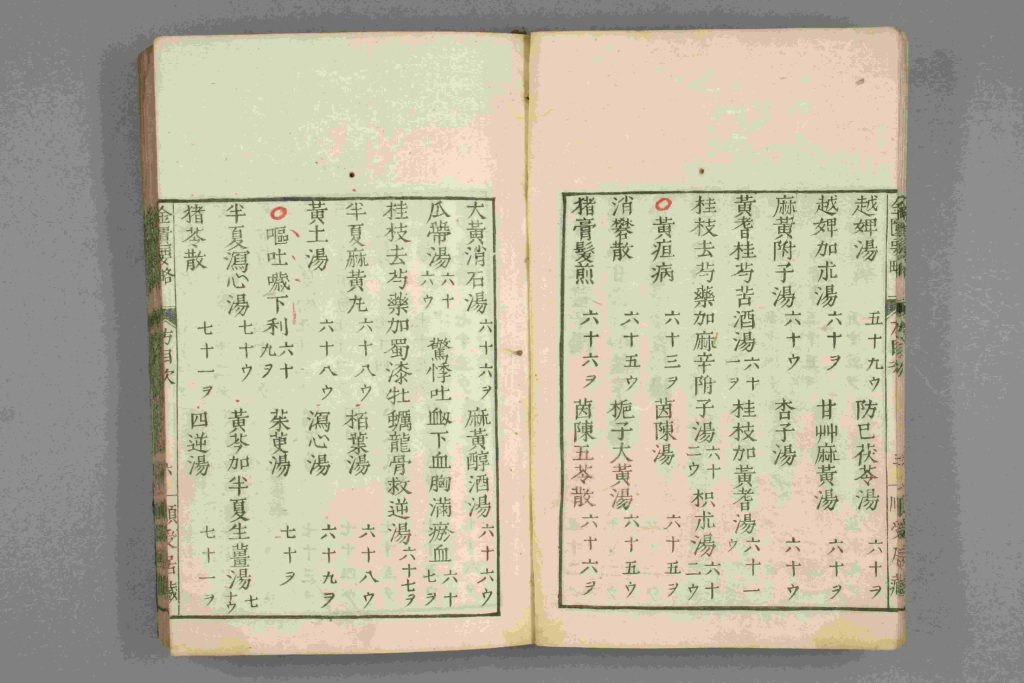 越婢湯 五十九ウ 防已茯苓湯 六十ヲ
越婢加朮湯 六十ヲ 甘艸麻黃湯 六十ヲ
麻黃附子湯 六十ウ 杏子湯 六十ウ
黃耆桂芍苦酒湯 六十一ヲ 桂枝加黃耆湯 六十一ウ
桂枝去芍藥加麻辛附子湯 六十二ウ 枳朮湯 六十二ウ
黃疸病 六十三ヲ 茵陳湯 六十五ヲ
消礬散 六十五ウ 梔子大黃湯 六十五ウ
猪膏髮煎 六十六ヲ 茵陳五苓散 六十六ヲ
大黃消石湯 六十六ヲ 麻黃醇酒湯 六十六ウ
瓜蒂湯 六十六ウ 驚悸吐衂下血胸滿瘀血 六十七ヲ
桂枝去芍藥加蜀漆牡蠣龍骨救逆湯 六十七ヲ
半夏麻黃丸 六十八ウ 栢葉湯 六十八ウ
黃土湯 六十八ウ 瀉心湯 六十九ヲ
嘔吐噦下利 六十九ヲ 茱萸湯 七十ヲ
半夏瀉心湯 七十ウ 黃芩加半夏生薑湯 七十ウ
猪苓散 七十一ヲ 四逆湯 七十一ヲ
金匱要略 方目次 六